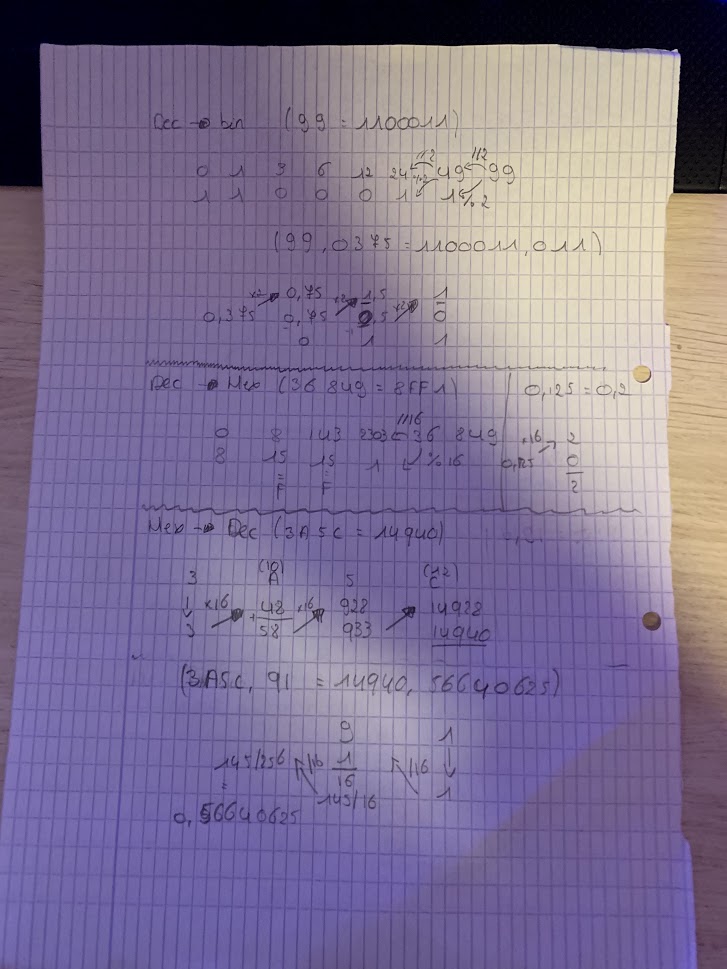 Dec → bin (99 = 1100011)
0 1 3 6 12 24 //2 49 //2 99
1 1 0 0 0 1 %2 1 % 2
(99,0375 = 1100011,011)
x2 0,75 x2 1,5 x2 1
0,375 0,75 0,5 0
0 1 1
Dec → Hex (36 849 = 8FF1)
0 8 143 2303 //16 36 849
8 15 15 1 % 16
= =
F F
0,125 = 0,2
x16 2
0,125 0
2
Hex → Dec (3A5C = 14940)
(10) (12)
3 A 5 C
↓ x16 + 48 x16 928 14928
3 58 933 14940
(3A5C, 91 = 14940, 56640625)
9 1
145/256 /16 1/16 /16 ↓
= 145/16 1
0,56640625